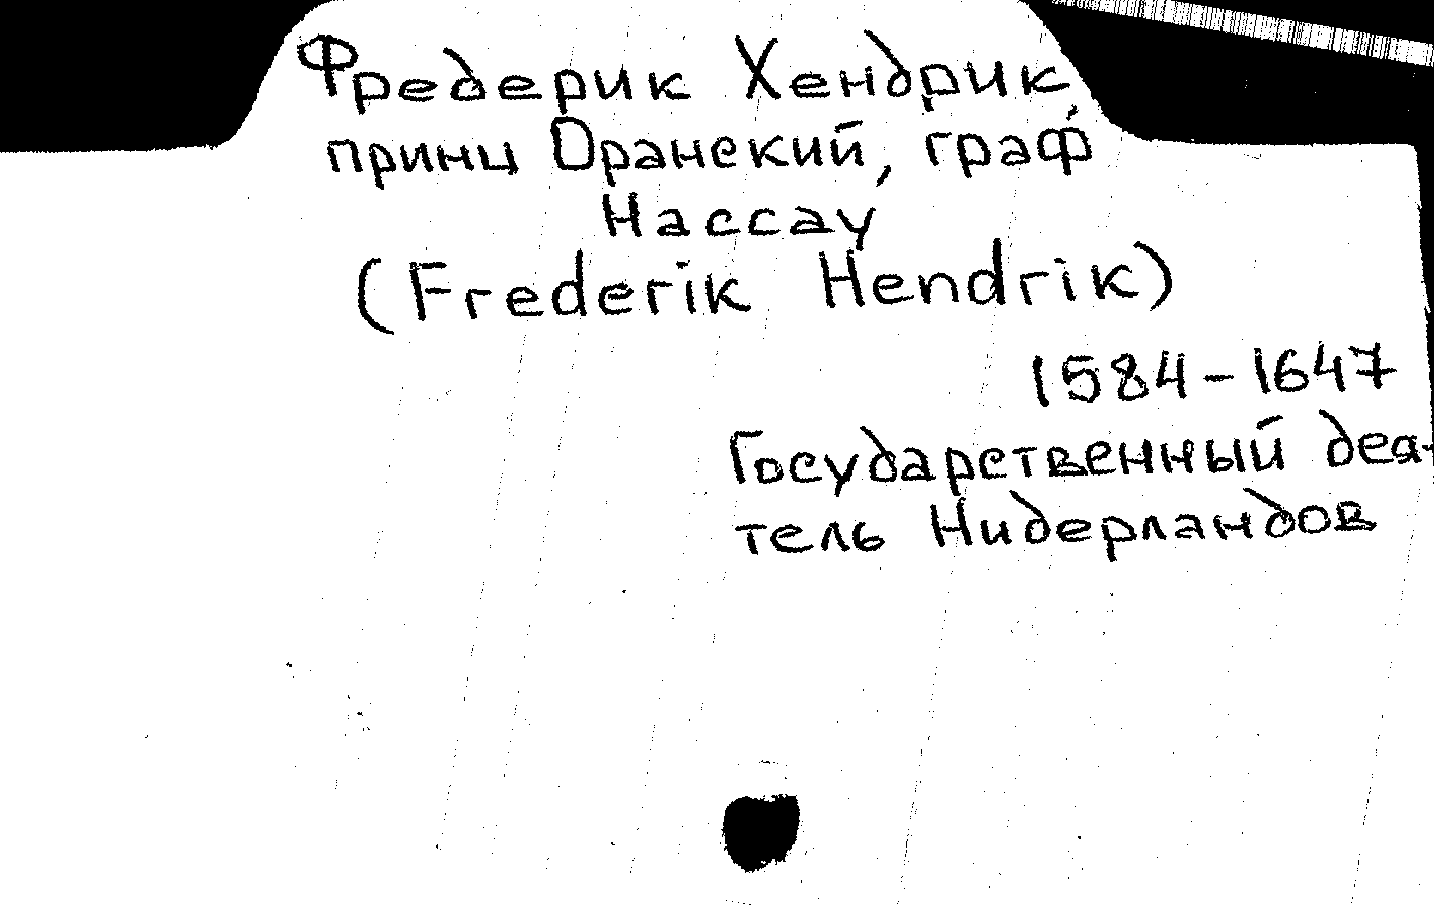 Фредерик Хендрик,
принц Оранский, граф
Нассау
(Frederik Hendrik)
1584-1647
Государственный дея-
тель Нидерландов